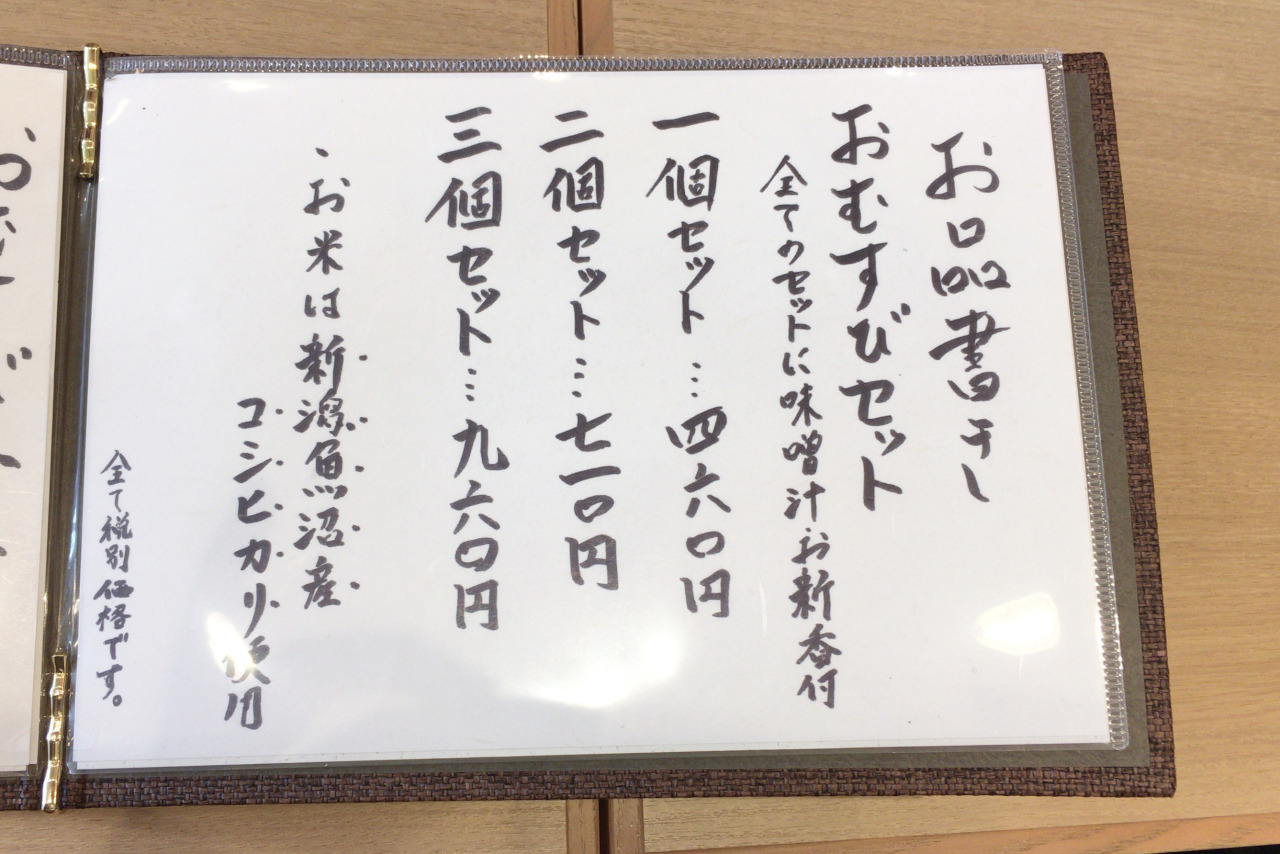 お品書き
おむすびセット
全てのセットに味噌汁お新香付
一個セット…四六〇円
二個セット…七一〇円
三個セット…九六〇円
、お米は新潟魚沼産
コシヒカリ使用
全て税別価格です。